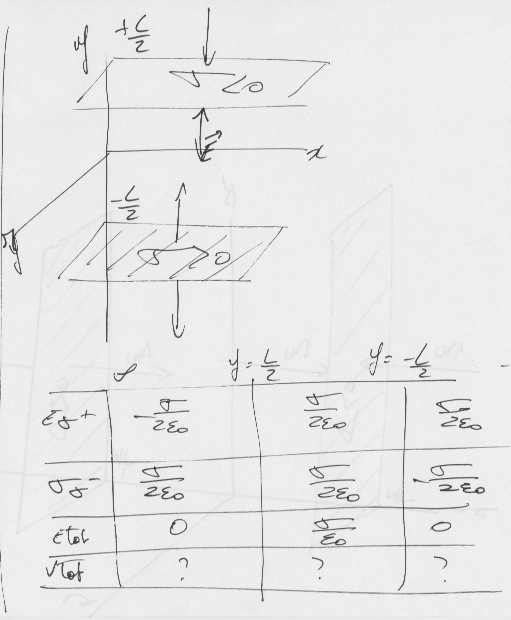 y +L/2
σ <0
E⃗
x
-L/2
σ >0
y = L/2 y = -L/2
-σ/2ε₀ σ/2ε₀ σ/2ε₀
σ/2ε₀ σ/2ε₀ -σ/2ε₀
Etot 0 σ/ε₀ 0
Vtot ? ? ?